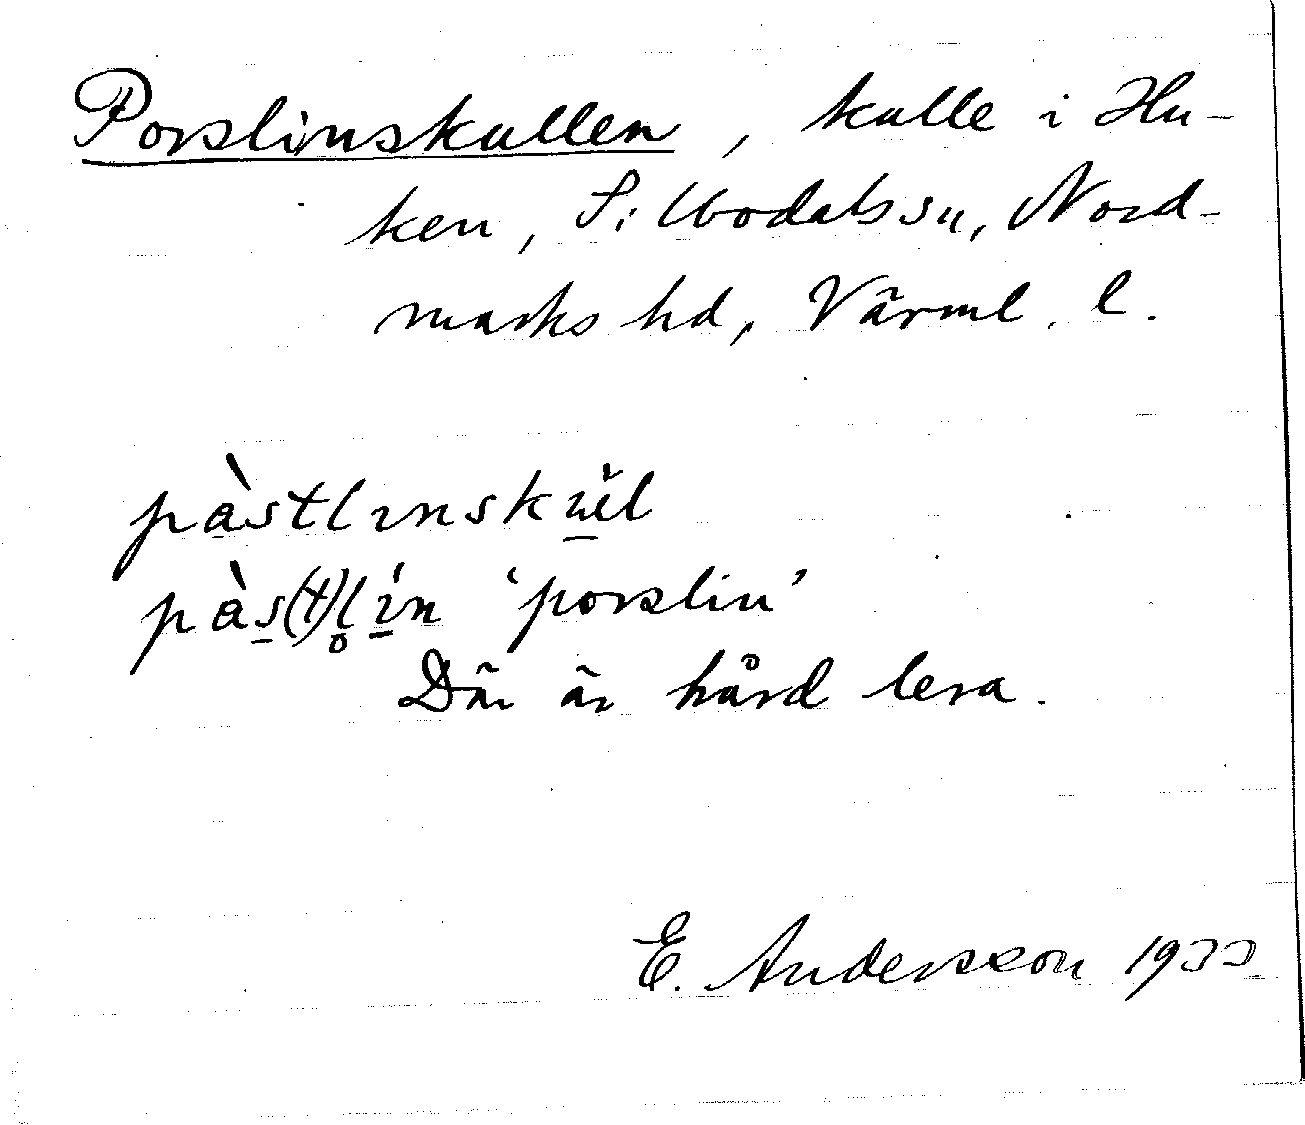 Porslinskullen, kulle i Hu-
ken, Silbodals sn, Nord-
marks hd, Värml. l.
pàstlınskŭl
pàs(t)l̥ín 'porslin'
Där är hård lera.
E. Andersson 1933